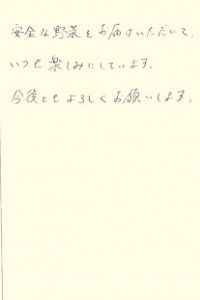 安全な野菜をお届けいただいて、
いつも楽しみにしています。
今後ともよろしくお願いします。